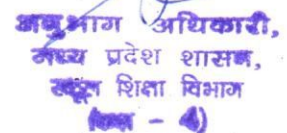 अनुभाग अधिकारी,
मध्य प्रदेश शासन,
स्कूल शिक्षा विभाग